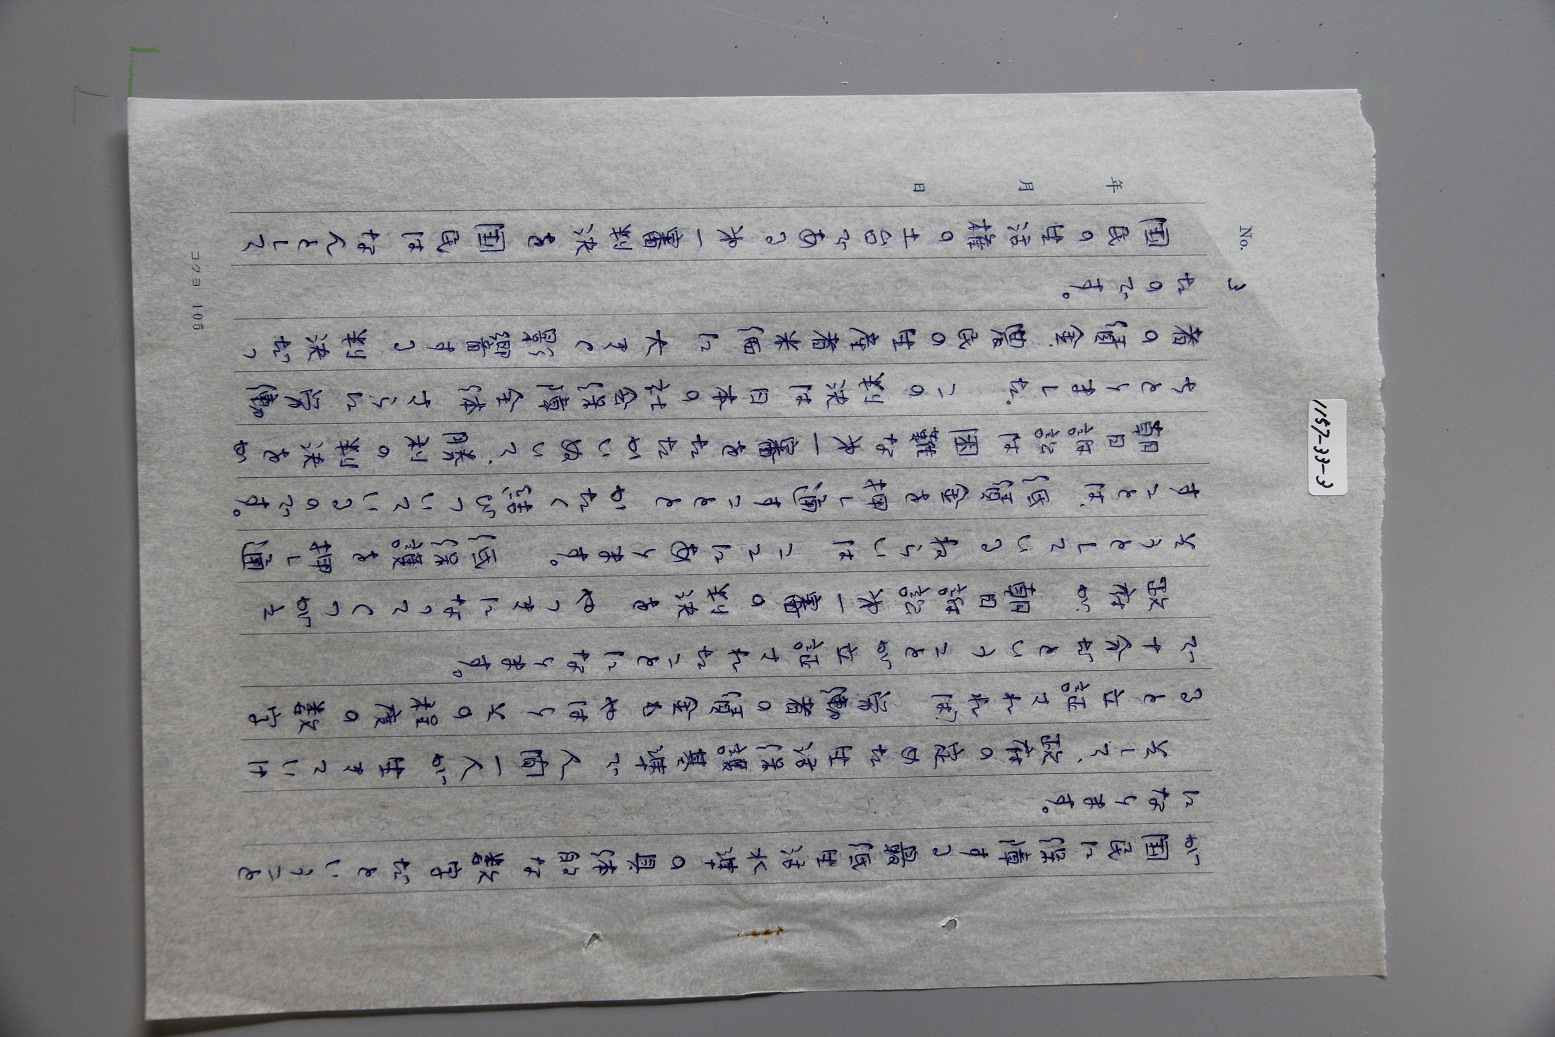 No. 3
年 月 日
が国民に保障する最低生活水準の具体的な数字だということ
になります。
そして、政府の定めた生活保護基準で、人間一人が生きていけ
ると立証されれば、労働者の賃金もやはりその程度の数字
で十分だということが立証されたことになります。
政府が朝日訴訟第一審の判決をやっきになってくつがえ
そうとしているねらいはここにあります。低保護を押し通
すことは、低賃金を押し通すこととかたく結びついているのです。
朝日訴訟は困難な第一審をたたかいぬいて、勝利の判決をか
ちとりました。この判決は日本の社会保障全体、さらに労働
者の賃金、農民の生産者米価に大きく影響する判決だっ
たのです。
国民の生活権の土台である。第一審判決を国民はなんとして
コクヨ 105
1157-33-3